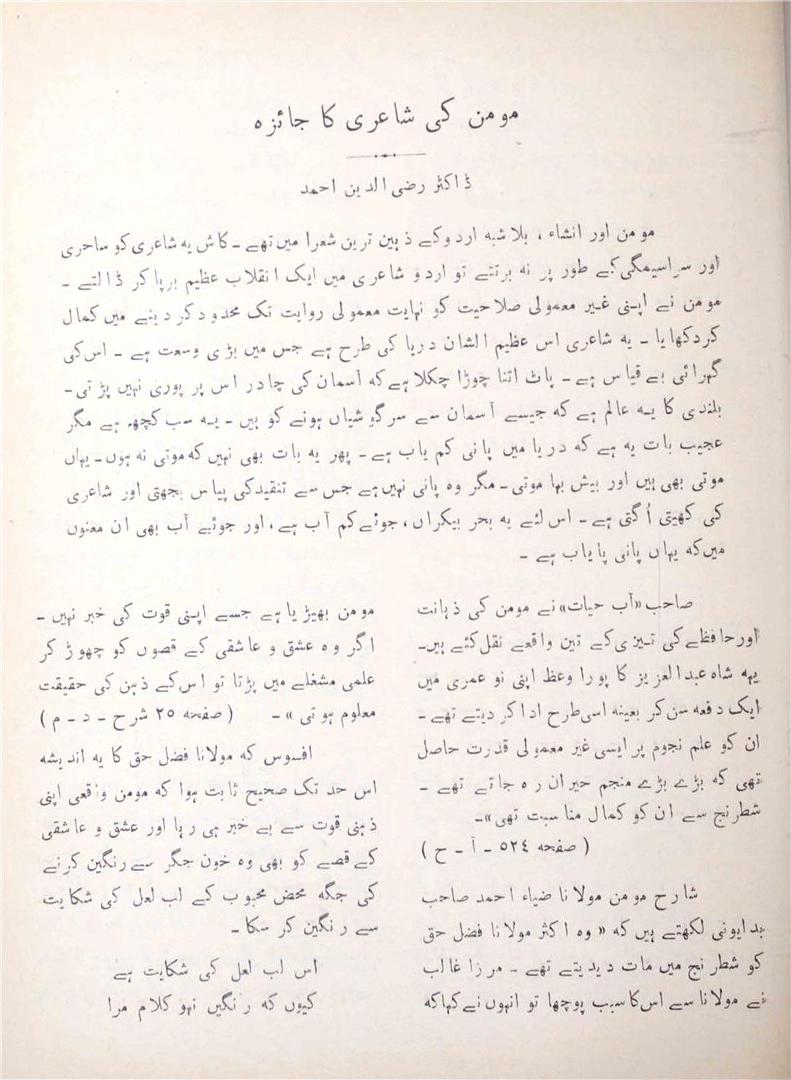 مومن کی شاعری کا جائزہ
ڈاکٹر رضی الدین احمد
مومن اور انشاء ، بلا شبہ اردو کے ذہین ترین شعرا میں تھے ۔ کاش یہ شاعری کو ساحری
اور سراسیمگی کے طور پر نہ برتتے تو اردو شاعری میں ایک انقلاب عظیم برپا کر ڈالتے ۔
مومن نے اپنی غیر معمولی صلاحیت کو نہایت معمولی روایت تک محدود کر دینے میں کمال
کر دکھایا ۔ یہ شاعری اس عظیم الشان دریا کی طرح ہے جس میں بڑی وسعت ہے ۔ اس کی
گہرائی بے قیاس ہے ۔ پاٹ اتنا چوڑا چکلا ہے کہ آسمان کی چادر اس پر پوری نہیں پڑتی ۔
بلندی کا یہ عالم ہے کہ جیسے آسمان سے سرگوشیاں ہونے کو ہیں ۔ یہ سب کچھ ہے مگر
عجیب بات یہ ہے کہ دریا میں پانی کم یاب ہے ۔ پھر یہ بات بھی نہیں کہ موتی نہ ہوں ۔ یہاں
موتی بھی ہیں اور بیش بہا موتی ۔ مگر وہ پانی نہیں ہے جس سے تنقید کی پیاس بجھتی اور شاعری
کی کھیتی اُگتی ہے ۔ اس لئے یہ بحر بیکراں ، جوئے کم آب ہے ، اور جوئے آب بھی ان معنوں
میں کہ یہاں پانی پایاب ہے ۔
صاحب «آب حیات» نے مومن کی ذہانت
اور حافظے کی تیزی کے تین واقعے نقل کئے ہیں ۔
یہ شاہ عبدالعزیز کا پورا وعظ اپنی نو عمری میں
ایک دفعہ سن کر بعینہ اسی طرح ادا کر دیتے تھے ۔
ان کو علم نجوم پر ایسی غیر معمولی قدرت حاصل
تھی کہ بڑے بڑے منجم حیران رہ جاتے تھے ۔
شطرنج سے ان کو کمال مناسبت تھی» ۔
( صفحہ ٥٢٤ ۔ آ ۔ ح )
شارح مومن مولانا ضیاء احمد صاحب
بدایونی لکھتے ہیں کہ « وہ اکثر مولانا فضل حق
کو شطرنج میں مات دیدیتے تھے ۔ مرزا غالب
نے مولانا سے اس کا سبب پوچھا تو انہوں نے کہا کہ
مومن بھیڑیا ہے جسے اپنی قوت کی خبر نہیں ۔
اگر وہ عشق و عاشقی کے قصوں کو چھوڑ کر
علمی مشغلے میں پڑتا تو اس کے ذہن کی حقیقت
معلوم ہوتی » ۔ ( صفحہ ٢٥ شرح ۔ د ۔ م )
افسوس کہ مولانا فضل حق کا یہ اندیشہ
اس حد تک صحیح ثابت ہوا کہ مومن واقعی اپنی
ذہنی قوت سے بے خبر ہی رہا اور عشق و عاشقی
کے قصے کو بھی وہ خون جگر سے رنگین کرنے
کی جگہ محض محبوب کے لب لعل کی شکایت
سے رنگین کر سکا ۔
اس لب لعل کی شکایت ہے
کیوں کہ رنگیں نہو کلام مرا